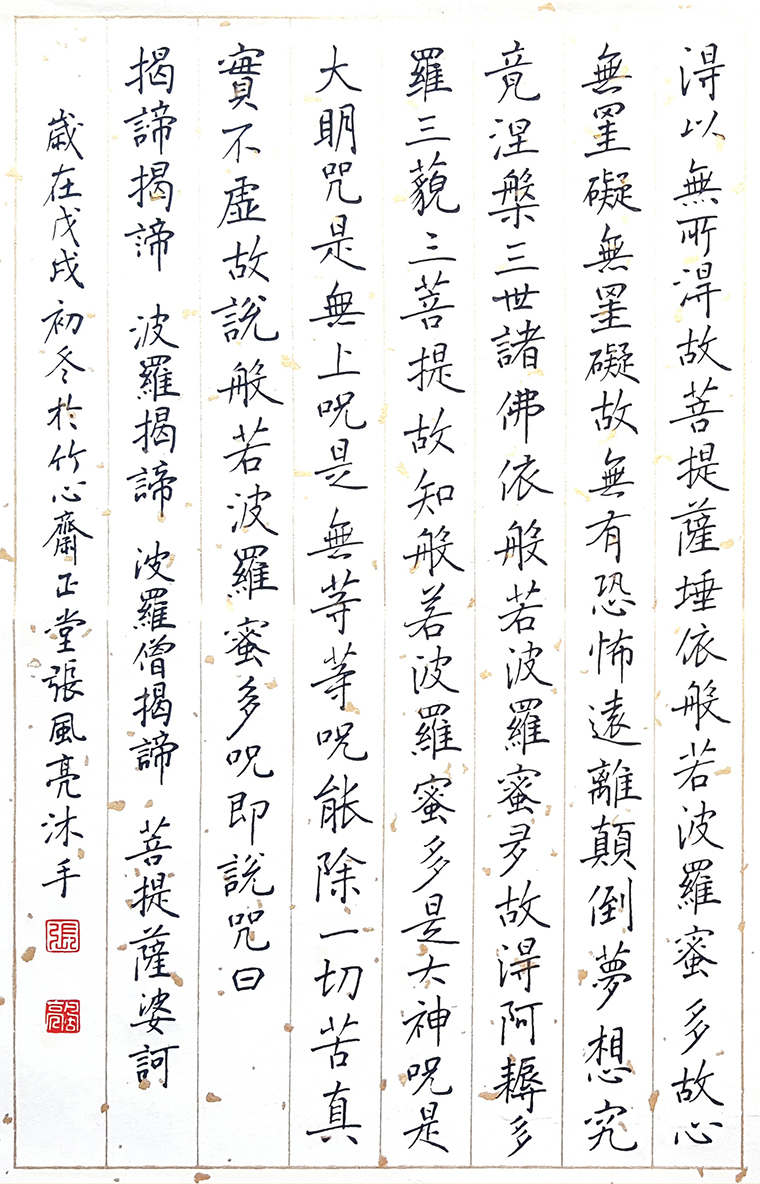 得以無所得故菩提薩埵依般若波羅蜜多故心
無罣礙無罣礙故無有恐怖遠離顛倒夢想究
竟涅槃三世諸佛依般若波羅蜜多故得阿耨多
羅三藐三菩提故知般若波羅蜜多是大神咒是
大明咒是無上咒是無等等咒能除一切苦真
實不虛故說般若波羅蜜多咒即說咒曰
揭諦揭諦 波羅揭諦 波羅僧揭諦 菩提薩婆訶
歲在戊戌初冬於竹心齋正堂張風亮沐手
張